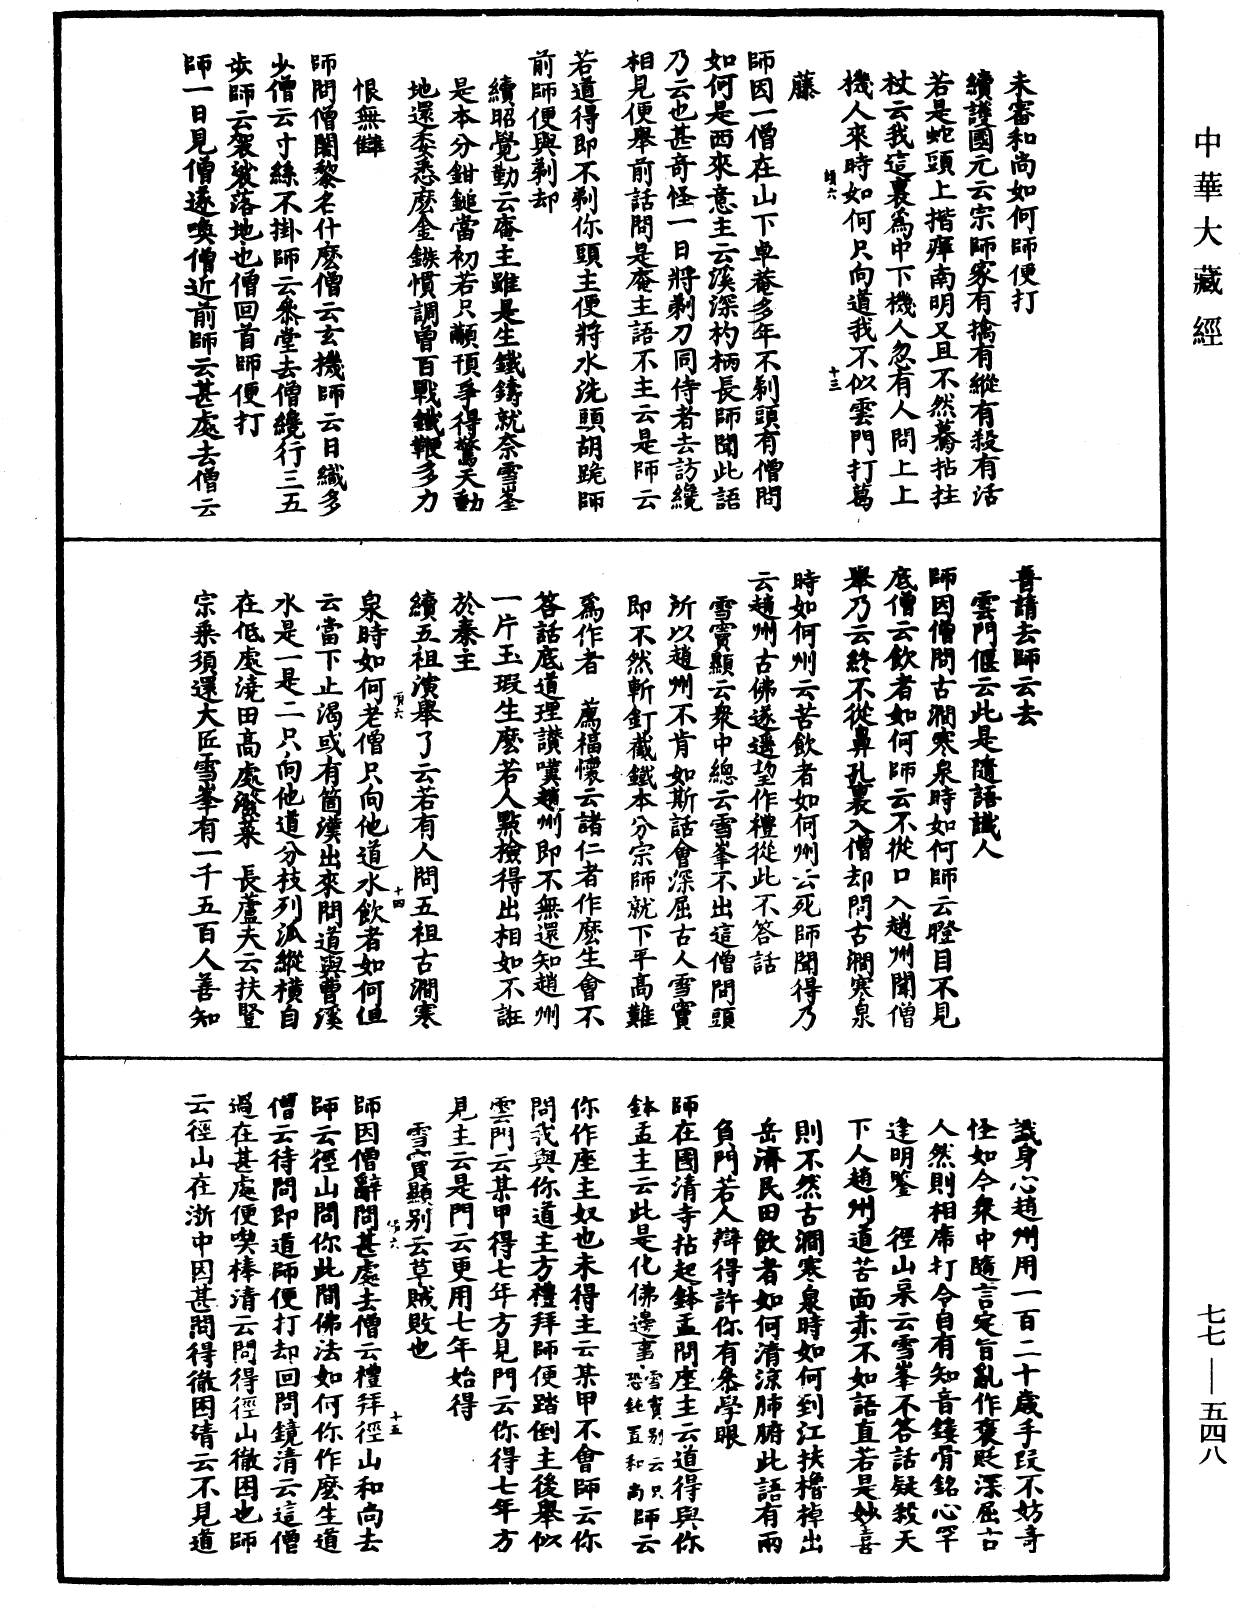 中華大藏經
未審和尚如何師便打
續護國元云宗師家有擒有縱有殺有活
若是蛇頭上揩癢南明又且不然驀拈拄
杖云我這裏為中下機人忽有人問上上
機人來時如何只向道我不似雲門打葛
藤
師因一僧在山下卓菴多年不剃頭有僧問
如何是西來意主云溪深杓柄長師聞此語
乃云也甚奇怪一日將剃刀同侍者去訪纔
相見便舉前話問是庵主語不主云是師云
若道得即不剃你頭主便將水洗頭胡跪師
前師便與剃却
續昭覺勤云庵主雖是生鐵鑄就奈雪峯
是本分鉗鎚當初若只顢頇爭得驚天動
地還委悉麼金鏃慣調曾百戰鐵鞭多力
恨無讎
師問僧闍黎名什麼僧云玄機師云日織多
少僧云寸絲不掛師云叅堂去僧纔行三五
步師云袈裟落地也僧回首師便打
師一日見僧遂喚僧近前師云甚處去僧云
普請去師云去
雲門偃云此是隨語識人
師因僧問古澗寒泉時如何師云瞪目不見
底僧云飲者如何師云不從口入趙州聞僧
舉乃云終不從鼻孔裏入僧却問古澗寒泉
時如何州云苦飲者如何州云死師聞得乃
云趙州古佛遂遥望作禮從此不答話
雪竇顯云衆中總云雪峯不出這僧問頭
所以趙州不肯如斯話會深屈古人雪竇
即不然斬釘截鐵本分宗師就下平高難
為作者　薦福懷云諸仁者作麼生會不
答話底道理讚嘆趙州即不無還知趙州
一片玉瑕生麼若人點撿得出相如不誑
於秦主
續五祖演舉了云若有人問五祖古澗寒
泉時如何老僧只向他道水飲者如何但
云當下止渴或有箇漢出來問道與曹溪
水是一是二只向他道分枝列派縱橫自
在低處澆田高處潑菜　長蘆夫云扶豎
宗乘須還大匠雪峯有一千五百人善知
識身心趙州用一百二十歲手段不妨奇
怪如今衆中隨言定旨亂作褒貶深屈古
人然則相席打令自有知音鏤骨銘心罕
逢明鑒　徑山杲云雪峯不答話疑殺天
下人趙州道苦面赤不如語直若是妙喜
則不然古澗寒泉時如何到江扶櫓棹出
岳濟民田飲者如何清涼肺腑此語有兩
負門若人辯得許你有叅學眼
師在國清寺拈起鉢盂問座主云道得與你
鉢盂主云此是化佛邊事雪竇別云只恐鈍置和尚師云
你作座主奴也未得主云某甲不會師云你
問我與你道主方禮拜師便踏倒主後舉似
雲門云某甲得七年方見門云你得七年方
見主云是門云更用七年始得
雪竇顯別云草賊敗也
師因僧辭問甚處去僧云禮拜徑山和尚去
師云徑山問你此間佛法如何你作麼生道
僧云待問即道師便打却回問鏡清云這僧
過在甚處便喫棒清云問得徑山徹困也師
云徑山在浙中因甚問得徹困清云不見道
七七—五四八